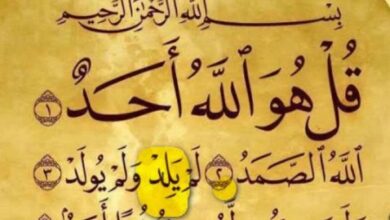 بِسْمِ ٱللَّهِ ٱلرَّحْمَٰنِ ٱلرَّحِيمِ
قُلْ هُوَ ٱللَّهُ أَحَدٌ ١
ٱللَّهُ ٱلصَّمَدُ ٢ لَمْ يَلِدْ وَلَمْ يُولَدْ ٣